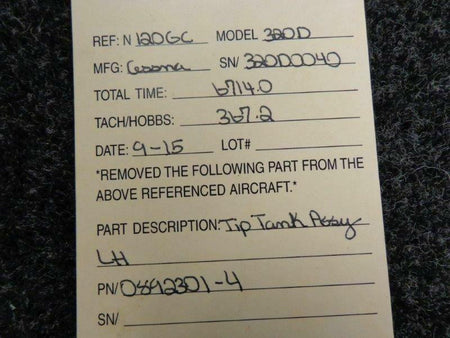 REF: N 120GC MODEL 320D
MFG: Cessna SN/ 320D0040
TOTAL TIME: 6714.0
TACH/HOBBS: 367.2
DATE: 9-15 LOT#
*REMOVED THE FOLLOWING PART FROM THE
ABOVE REFERENCED AIRCRAFT.*
PART DESCRIPTION: Tip Tank Assy
LH
PN/ 0892301-4
SN/